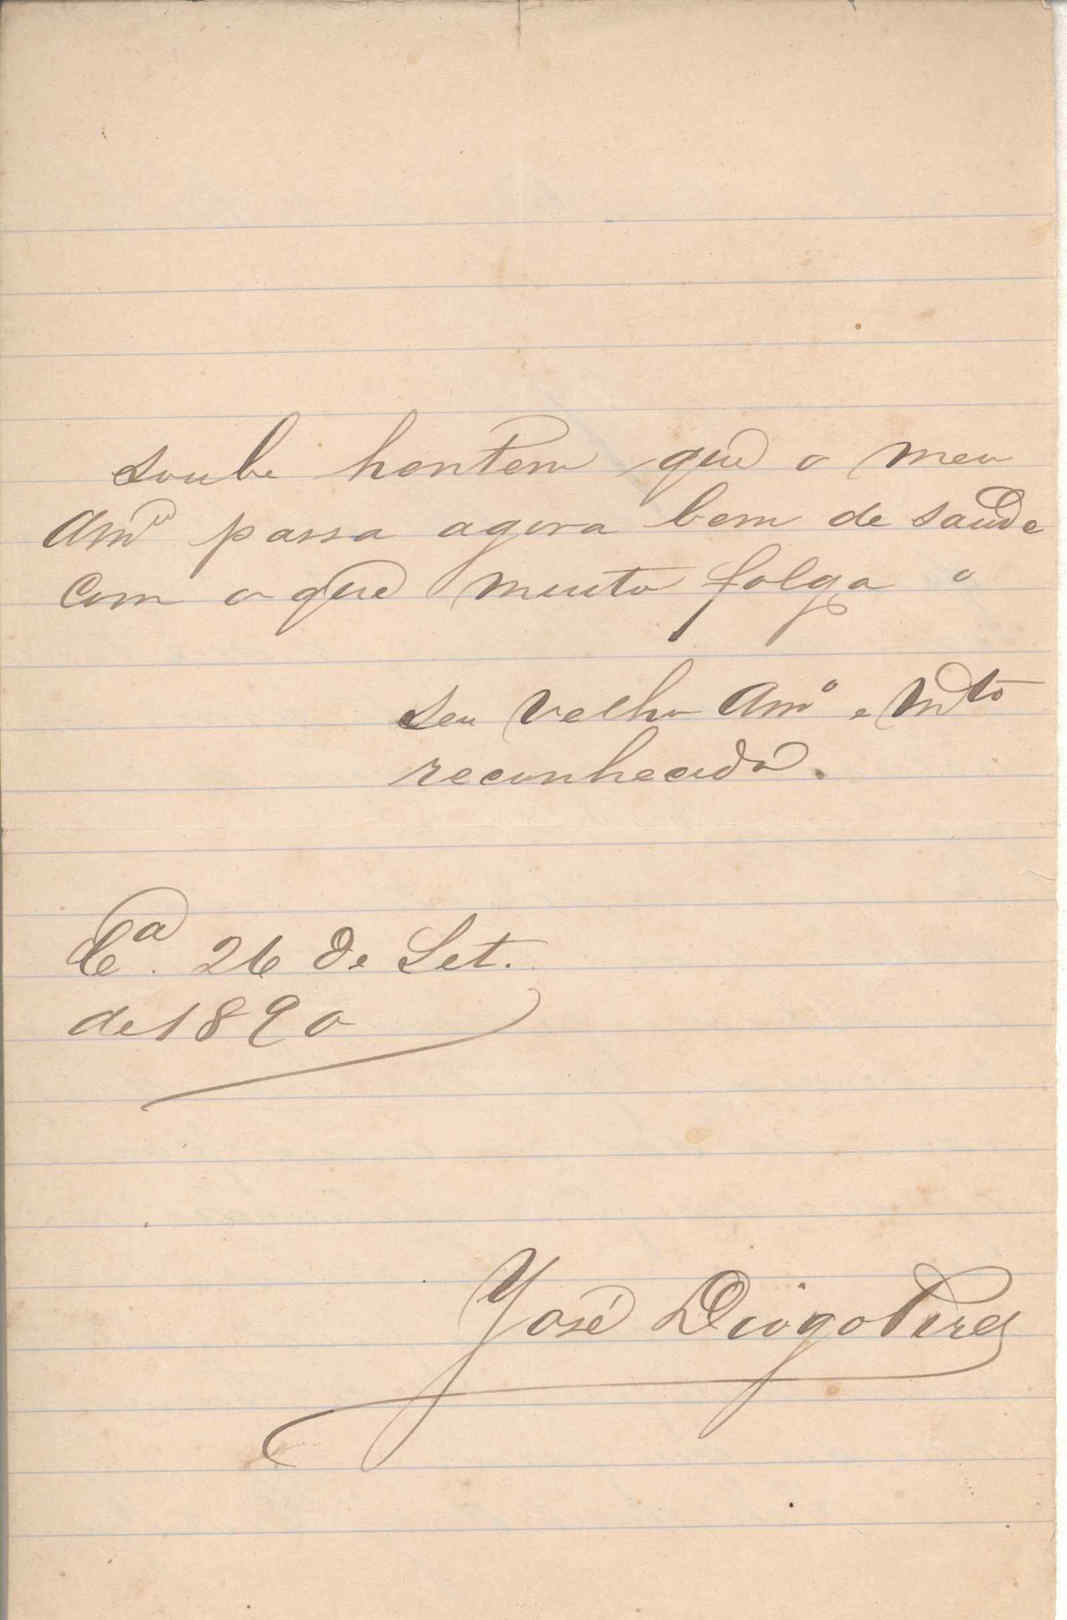 soube hontem que o meu
Amº passa agora bem de saude
com o que muito folga o
seu velho Amº e Mto
reconhecido.
Cª. 26 de Set.
de 1890
José Diogo Pires